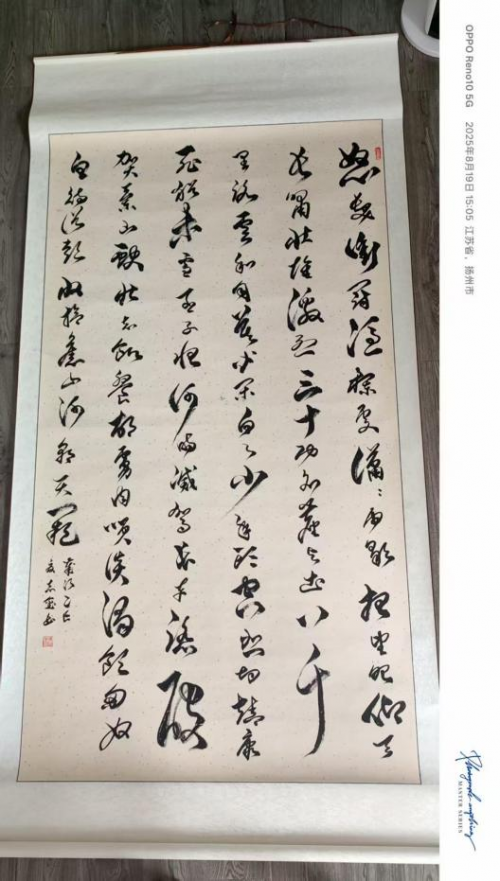 怒发冲冠凭栏处潇々雨歇抬望眼仰天
长啸壮怀激烈三十功名尘与土八千
里路云和月莫等闲白了少年头空悲切靖康
耻犹未雪臣子恨何时灭驾长车踏破
贺兰山缺壮志饥餐胡虏肉笑谈渴饮匈奴
血待从头收拾旧山河朝天阙
OPPO Reno10 5G 2025年8月19日 15:05 江苏省，扬州市
MASTER SERIES